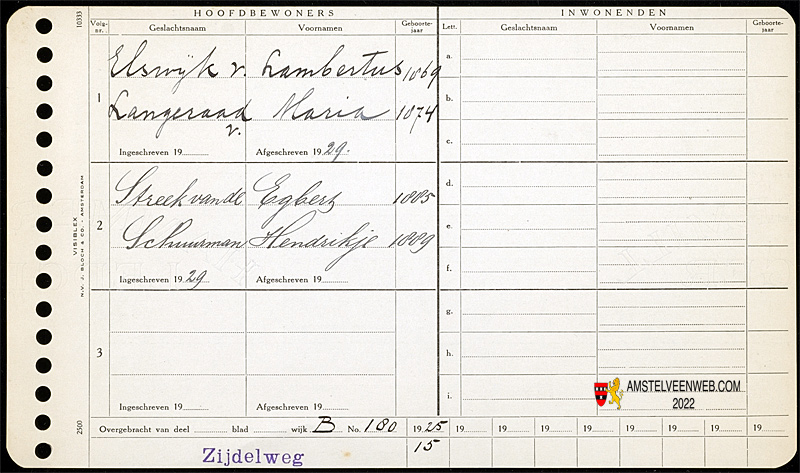 HOOFDBEWONERS
INWONENDEN
10333
Volg-
nr.
Geslachtsnaam
Voornamen
Geboorte-
jaar
Lett.
Geslachtsnaam
Voornamen
Geboorte-
jaar
1
Elswijk v. Lambertus 1869
Langeraad Maria 1874
v.
Ingeschreven 19
Afgeschreven 19 29.
a.
b.
c.
VISIBLEX
N.V. J. BLOCH & CO. - AMSTERDAM
2
Streek van de Egbert 1885
Schuurman Hendrikje 1889
Ingeschreven 19 29
Afgeschreven 19
d.
e.
f.
3
Ingeschreven 19
Afgeschreven 19
g.
h.
i.
AMSTELVEENWEB.COM
2022
2500
Overgebracht van deel blad wijk B No. 180 19 25 19 19 19 19 19 19 19
15
Zijdelweg